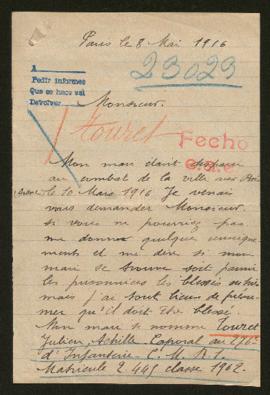 Paris le 8 Mai 1916
A
Pedir informes
Que se haca val
Devolver
23029
Monsieur.
Touret
Fecho
Mon mari étant disparu
au combat de la ville aux Bois
le 10 Mars 1916 Je venais
vous demander Monsieur
si vous ne pourriez pas
me donner quelque renseigne
ments et me dire si mon
mari se trouve soit parmi
les prisonniers les blessés
mais j'ai tout lieu de présu
mer qu'il doit être blessé.
Mon mari si nomme Touret
Julien, Achille. Caporal au 276e
d'Infanterie C. M. B. 1.
Matricule 2.445 classe 1902.